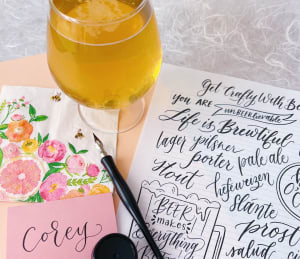 Get Crafty With Be
you are unbeerlievable
Life is Brewtiful
lager pilsner
porter pale ale
Stout
hefeweizen
BEER
makes
Everything
Slante
prost
salud
Corey